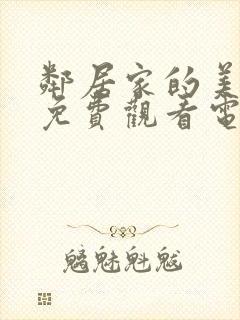 鄰居家的美
免費觀看電
魑魅魁魃